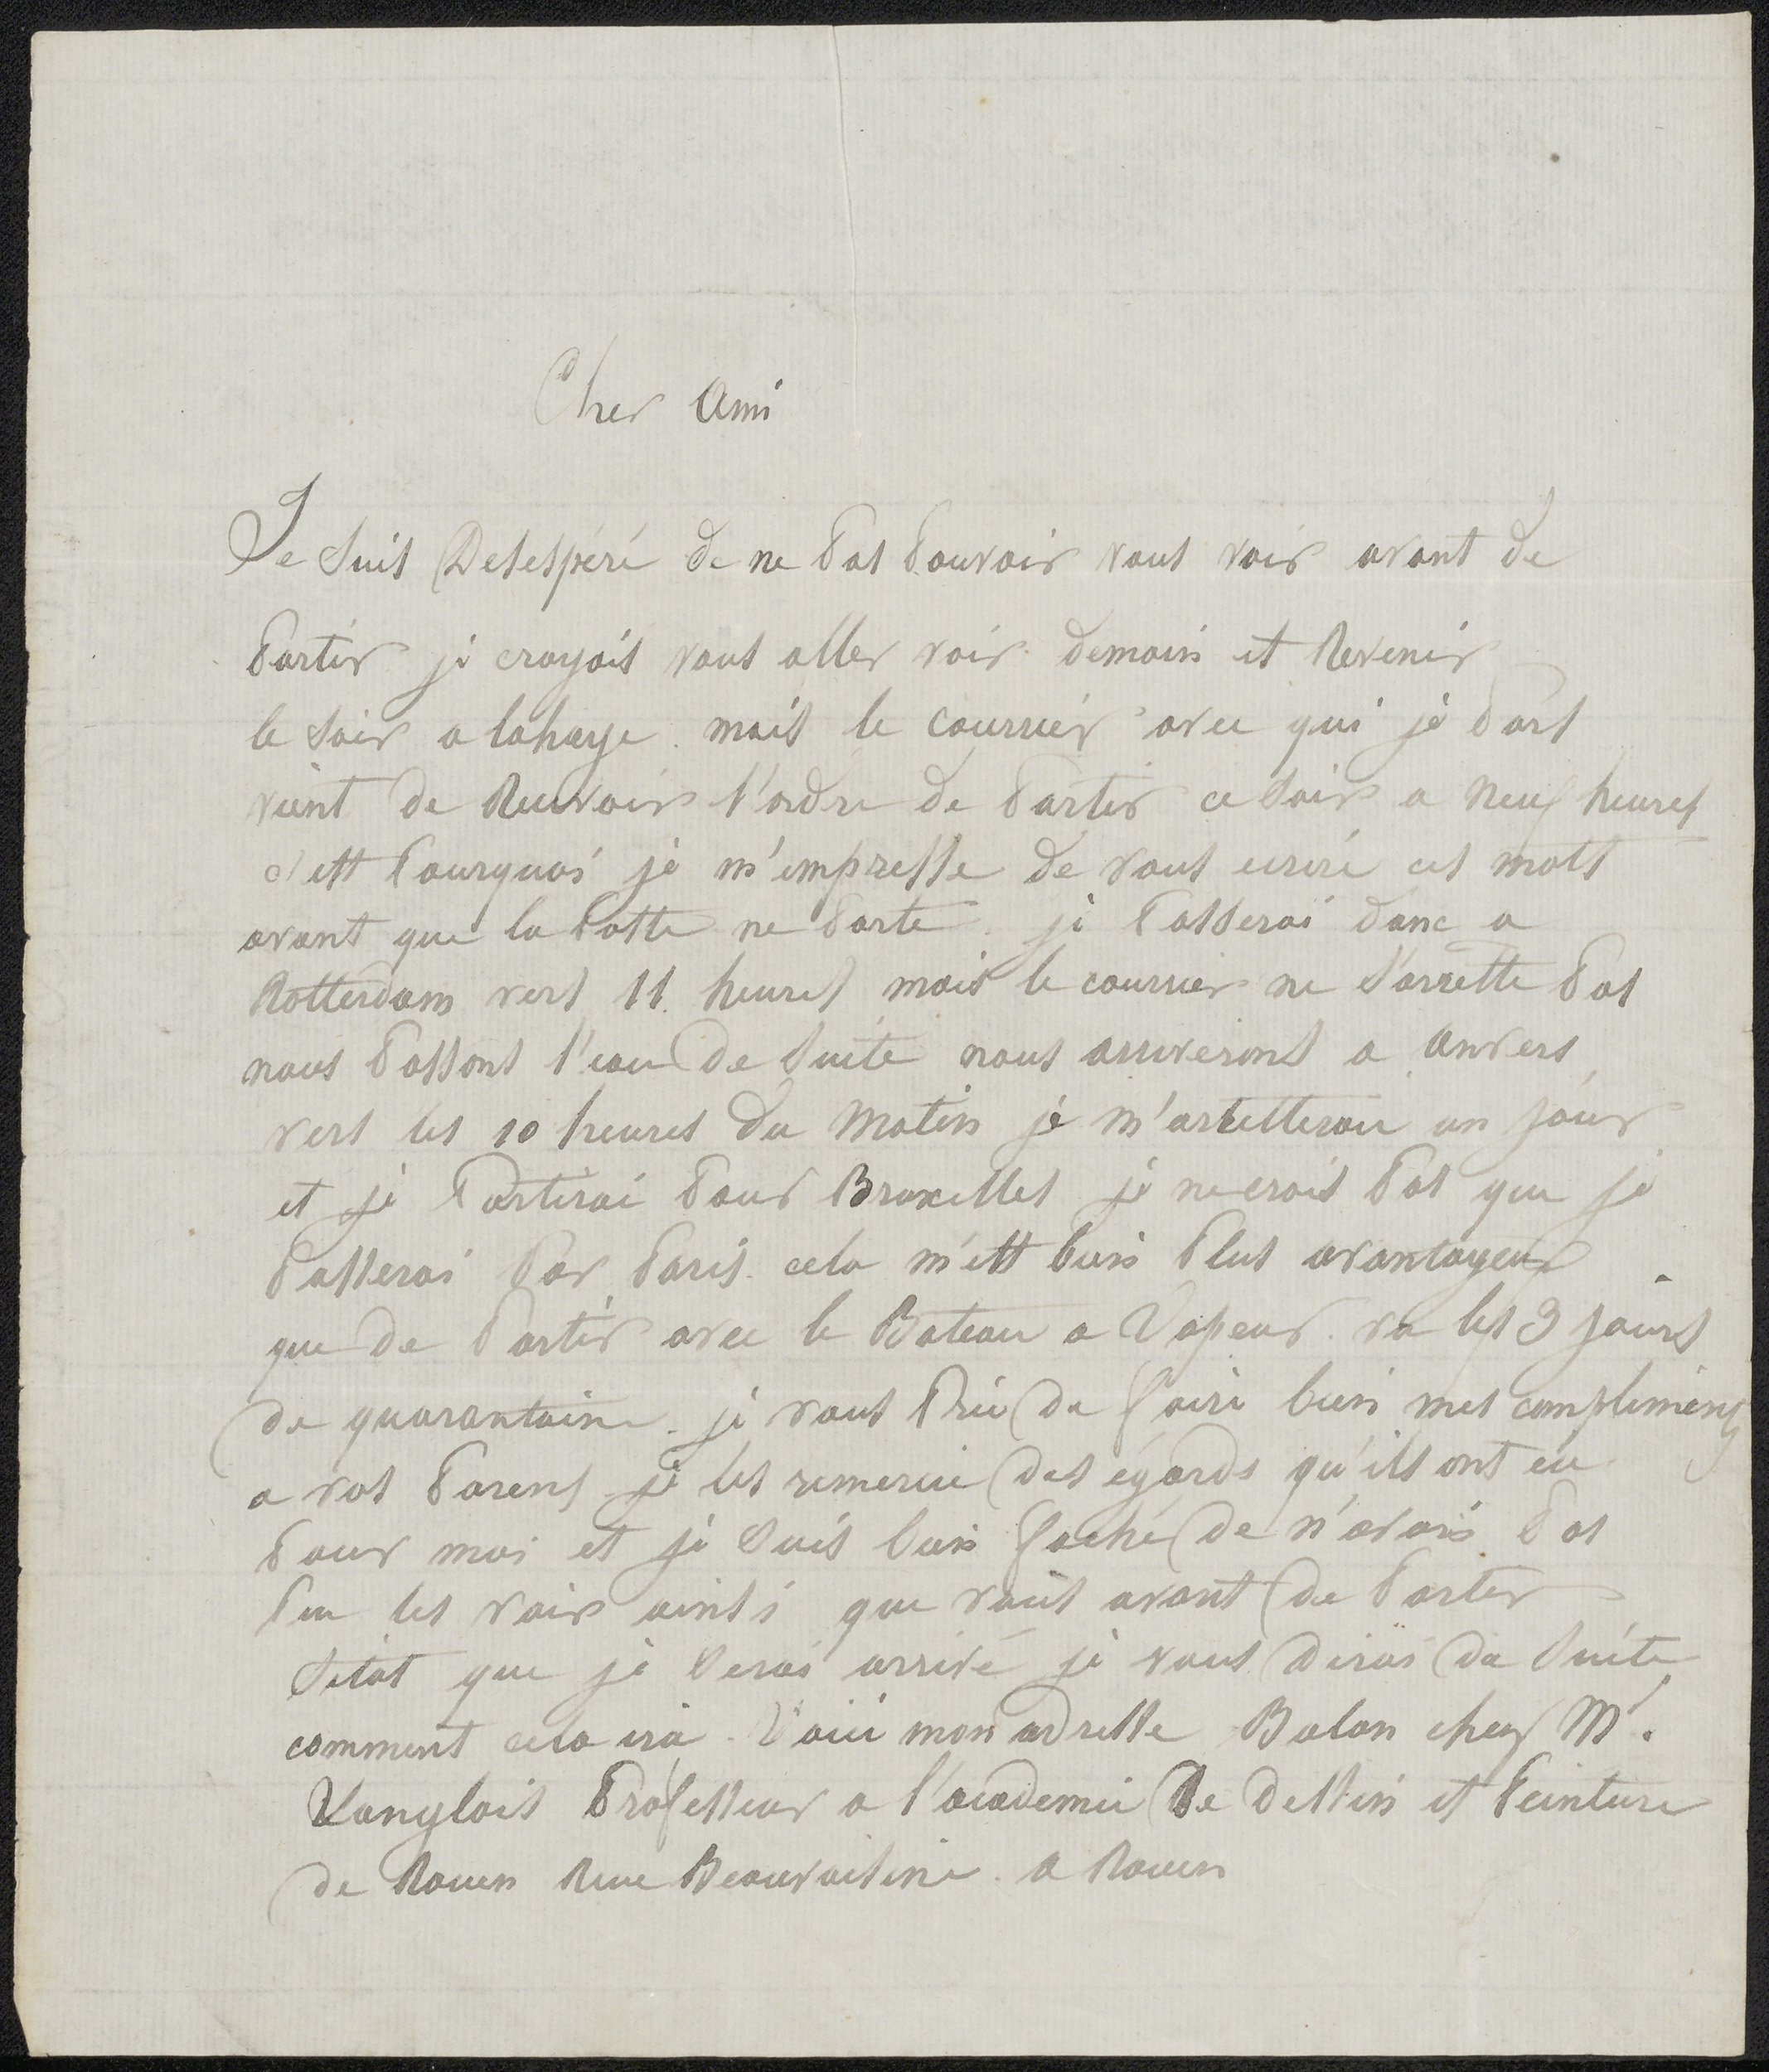 Cher Ami
Je suis Desespéré de ne Pas Pouvoir vous voir avant de
Partir je croyais vous aller voir demain et Revenir
le soir a lahaye. mais le courrier avec qui je Pars
vient de Recevoir l'ordre de Partir ce soir a Neuf heures
c'est Pourquoi je m'empresse de vous ecrire ces mots
avant que la Poste ne Parte. je Passerai donc a
Rotterdam vers 11 heures mais le courrier ne s'arrette Pas
nous Passons l'eau de suite nous arriverons a Anvers
vers les 10 heures du Matin je m'arretterai un jour
et je Partirai Pour Bruxelles je ne crois Pas que je
Passerai Par Paris. cela m'est bien Plus avantageux
que de Partir avec le Bateau a Vapeur. vu les 3 jours
de quarantaine. je vous Prie de faire bien mes compliments
a vos Parens je les remercie des égards qu'ils ont eu
Pour moi et je suis bien faché de n'avoir Pas
Pu les voir ainsi que vous avant de Partir
sitot que je serai arrivé je vous dirai de suite
comment cela ira. Voici mon adresse Balan chez Mr.
Langlois Professeur a l'academie De dessin et Peinture
de Rouen Rue Beauvoisine. a Rouen